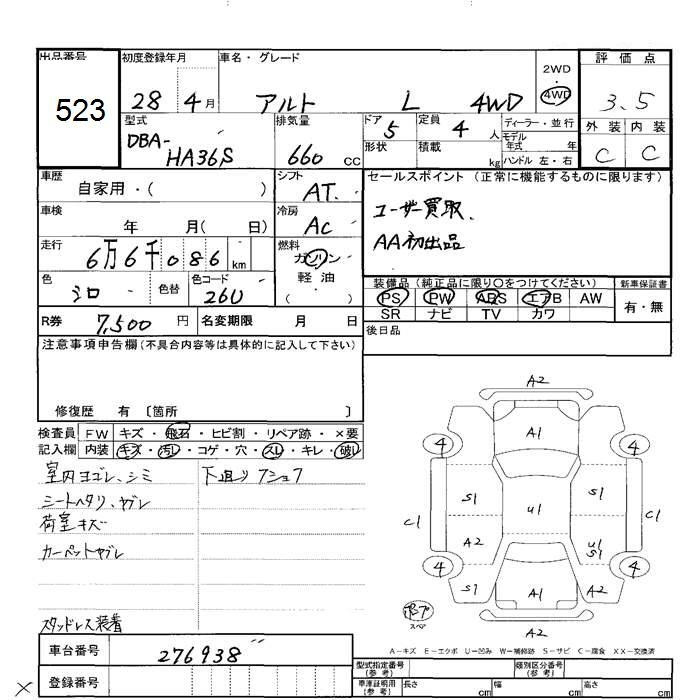 出品番号 初度登録年月 車名・グレード 2WD 評価点
523 28 4月 アルト L 4WD 4WD 3.5
型式 排気量 ドア 定員 ディーラー・並行 外装 内装
DBA-HA36S 660 CC 5 4 人 モデル年式 年 C C
形状 積載 kg ハンドル 左・右
車歴 シフト セールスポイント (正常に機能するものに限ります)
自家用・( ) AT ユーザー買取、
車検 冷房 AA初出品
年 月( 日) AC
走行 燃料
6万6千086 km ガソリン
色 色替 色コード 軽油 装備品 (純正品に限り○をつけてください) 新車保証書
シロ 26U ( ) PS PW ABS エアB AW 有・無
R券 7,500 円 名変期限 月 日 SR ナビ TV カワ
注意事項申告欄(不具合内容等は具体的に記入して下さい) 後日品
修復歴 有 〔箇所 〕
検査員 FW キズ・飛石・ヒビ割・リペア跡・×要
記入欄 内装 キズ・汚レ・コゲ・穴・スレ・キレ・破レ
室内ヨゴレ、シミ 下廻り
シートヘタリ、ヤブレ
荷室キズ
カーペットヤブレ
スタッドレス装着
A2
A1
4 4
S1 S1
C1 U1 C1
A2 U1 S1
4 4
S1 A1 A2
スペア
A2
A-キズ E-エクボ U-凹み W-補修跡 S-サビ C-腐食 XX-交換済
車台番号 276938 型式指定番号(参考) 類別区分番号(参考)
登録番号 車庫証明用(参考) 長さ cm 幅 cm 高さ cm
×